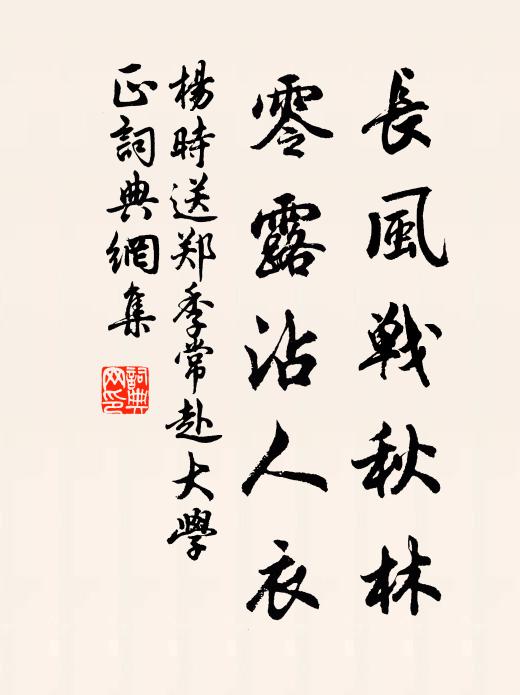 長風戰秋林
零露沾人衣
楊時送郑季常赴大學
正詞典網集
詞典網印